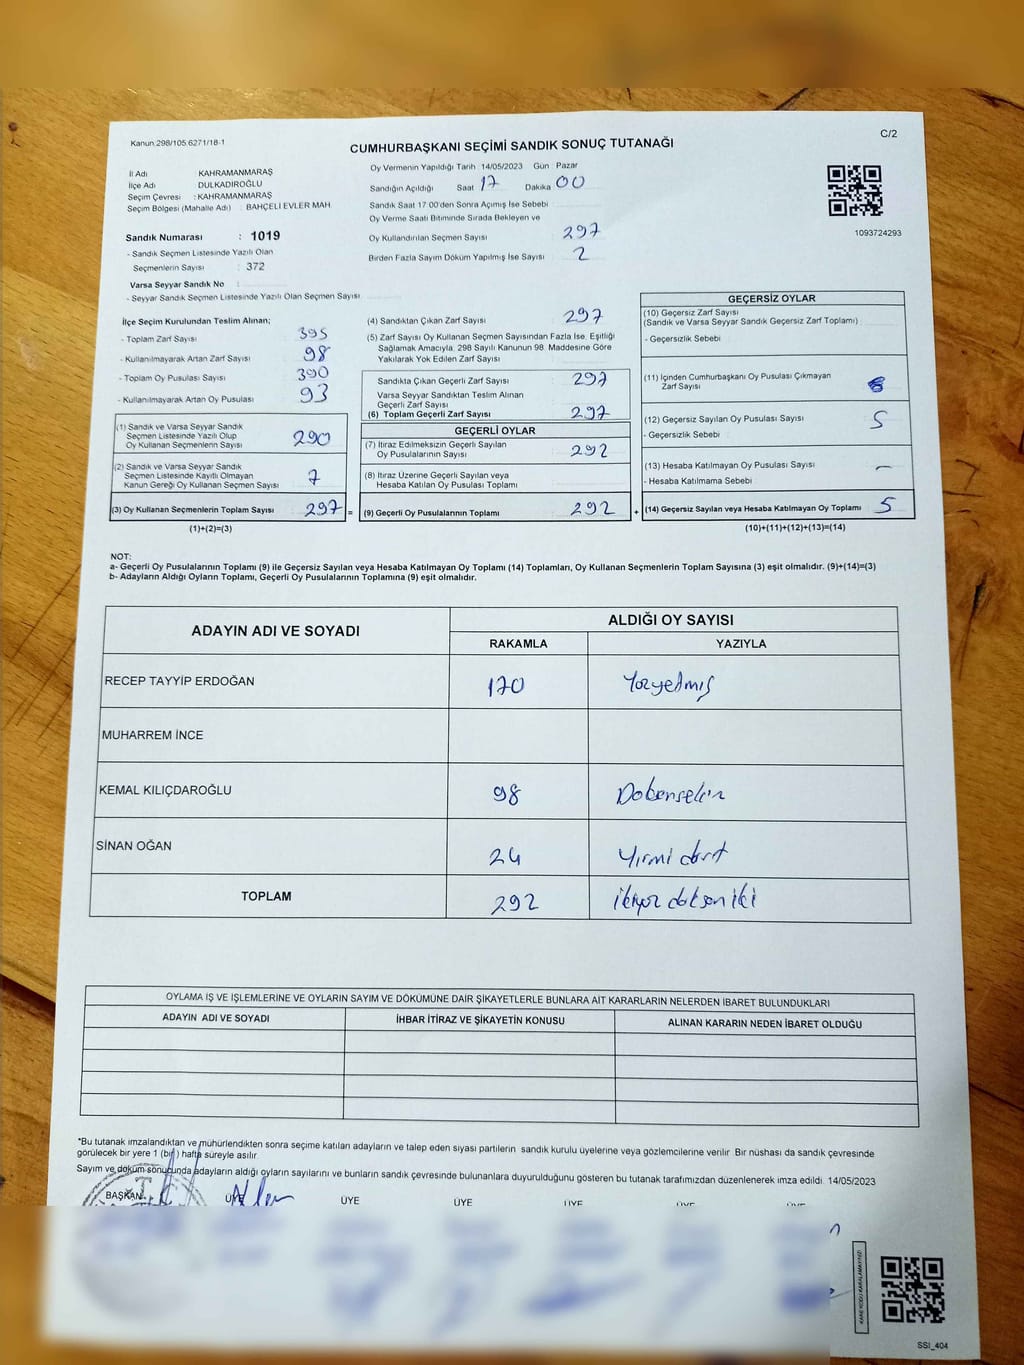 Kanun:298/105,6271/18-1
C/2
CUMHURBAŞKANI SEÇİMİ SANDIK SONUÇ TUTANAĞI
İl Adı KAHRAMANMARAŞ
İlçe Adı DULKADİROĞLU
Seçim Çevresi : KAHRAMANMARAŞ
Seçim Bölgesi (Mahalle Adı) : BAHÇELİ EVLER MAH.
Sandık Numarası : 1019
- Sandık Seçmen Listesinde Yazılı Olan
Seçmenlerin Sayısı : 372
Varsa Seyyar Sandık No :
- Seyyar Sandık Seçmen Listesinde Yazılı Olan Seçmen Sayısı
Oy Vermenin Yapıldığı Tarih 14/05/2023 Gün : Pazar
Sandığın Açıldığı Saat 17 Dakika 00
Sandık Saat 17:00'den Sonra Açımış İse Sebebi
Oy Verme Saati Bitiminde Sırada Bekleyen ve
Oy Kullandırılan Seçmen Sayısı 297
Birden Fazla Sayım Döküm Yapılmış İse Sayısı 2
1093724293
İlçe Seçim Kurulundan Teslim Alınan;
- Toplam Zarf Sayısı 395
- Kullanılmayarak Artan Zarf Sayısı 98
- Toplam Oy Pusulası Sayısı 390
- Kullanılmayarak Artan Oy Pusulası 93
(1) Sandık ve Varsa Seyyar Sandık
Seçmen Listesinde Yazılı Olup
Oy Kullanan Seçmenlerin Sayısı 290
(2) Sandık ve Varsa Seyyar Sandık
Seçmen Listesinde Kayıtlı Olmayan
Kanun Gereği Oy Kullanan Seçmen Sayısı 7
(3) Oy Kullanan Seçmenlerin Toplam Sayısı 297 =
(1)+(2)=(3)
(4) Sandıktan Çıkan Zarf Sayısı 297
(5) Zarf Sayısı Oy Kullanan Seçmen Sayısından Fazla İse, Eşitliği
Sağlamak Amacıyla, 298 Sayılı Kanunun 98. Maddesine Göre
Yakılarak Yok Edilen Zarf Sayısı
Sandıkta Çıkan Geçerli Zarf Sayısı 297
Varsa Seyyar Sandıktan Teslim Alınan
Geçerli Zarf Sayısı
(6) Toplam Geçerli Zarf Sayısı 297
GEÇERLİ OYLAR
(7) İtiraz Edilmeksizin Geçerli Sayılan
Oy Pusulalarının Sayısı 292
(8) İtiraz Üzerine Geçerli Sayılan veya
Hesaba Katılan Oy Pusulası Toplamı
(9) Geçerli Oy Pusulalarının Toplamı 292 +
GEÇERSİZ OYLAR
(10) Geçersiz Zarf Sayısı
(Sandık ve Varsa Seyyar Sandık Geçersiz Zarf Toplamı)
- Geçersizlik Sebebi
(11) İçinden Cumhurbaşkanı Oy Pusulası Çıkmayan
Zarf Sayısı
(12) Geçersiz Sayılan Oy Pusulası Sayısı 5
- Geçersizlik Sebebi
(13) Hesaba Katılmayan Oy Pusulası Sayısı –
- Hesaba Katılmama Sebebi
(14) Geçersiz Sayılan veya Hesaba Katılmayan Oy Toplamı 5
(10)+(11)+(12)+(13)=(14)
NOT:
a- Geçerli Oy Pusulalarının Toplamı (9) ile Geçersiz Sayılan veya Hesaba Katılmayan Oy Toplamı (14) Toplamları, Oy Kullanan Seçmenlerin Toplam Sayısına (3) eşit olmalıdır. (9)+(14)=(3)
b- Adayların Aldığı Oyların Toplamı, Geçerli Oy Pusulalarının Toplamına (9) eşit olmalıdır.
ADAYIN ADI VE SOYADI ALDIĞI OY SAYISI
RAKAMLA YAZIYLA
RECEP TAYYİP ERDOĞAN 170 Yüzyetmiş
MUHARREM İNCE
KEMAL KILIÇDAROĞLU 98 Doksansekiz
SİNAN OĞAN 24 Yirmi dört
TOPLAM 292 ikiyüz doksan iki
OYLAMA İŞ VE İŞLEMLERİNE VE OYLARIN SAYIM VE DÖKÜMÜNE DAİR ŞİKAYETLERLE BUNLARA AİT KARARLARIN NELERDEN İBARET BULUNDUKLARI
ADAYIN ADI VE SOYADI İHBAR İTİRAZ VE ŞİKAYETİN KONUSU ALINAN KARARIN NEDEN İBARET OLDUĞU
*Bu tutanak imzalandıktan ve mühürlendikten sonra seçime katılan adayların ve talep eden siyasi partilerin sandık kurulu üyelerine veya gözlemcilerine verilir. Bir nüshası da sandık çevresinde
görülecek bir yere 1 (bir) hafta süreyle asılır.
Sayım ve döküm sonucunda adayların aldığı oyların sayılarını ve bunların sandık çevresinde bulunanlara duyurulduğunu gösteren bu tutanak tarafımızdan düzenlenerek imza edildi. 14/05/2023
BAŞKAN ÜYE ÜYE ÜYE ÜYE ÜYE ÜYE
SSI_404